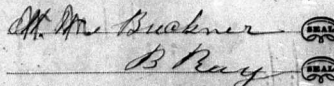 W. M. Buckner SEAL
B Ray SEAL